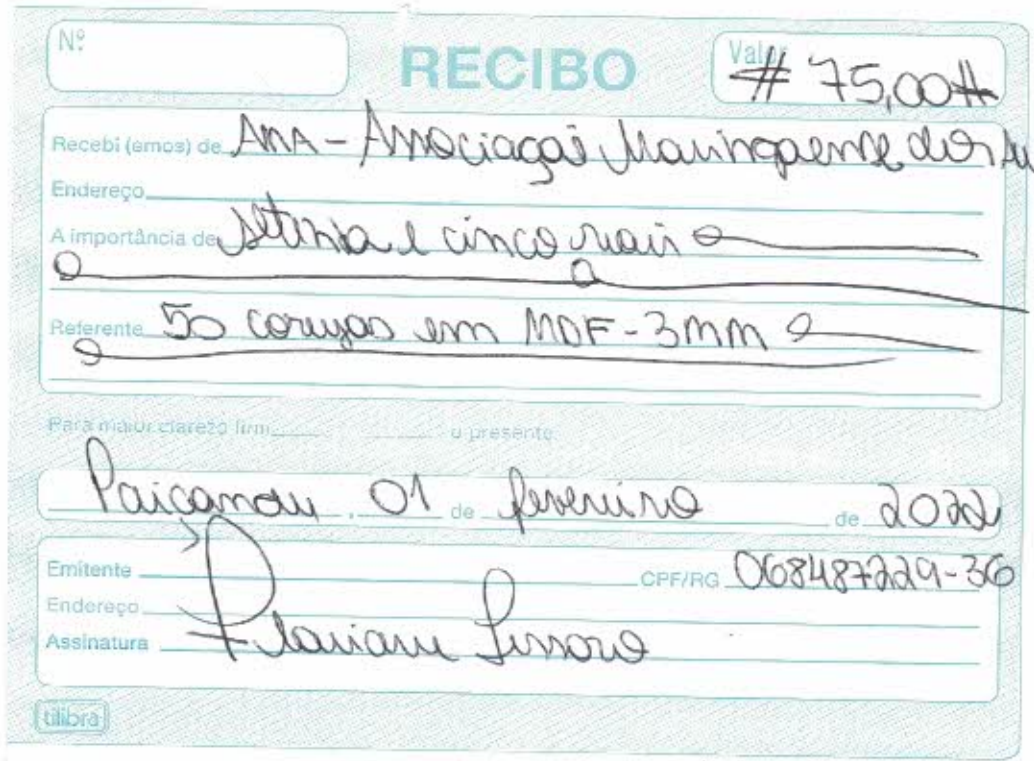 Nº
RECIBO
Valor
# 75,00 #
Recebi (emos) de AMA - Associação Maringaense dos Au
Endereço
A importância de setenta e cinco reais
Referente 50 corujas em MDF - 3MM
Para maior clareza firm o presente.
Paiçandu, 01 de fevereiro de 2022
Emitente CPF/RG 068487229-36
Endereço
Assinatura
tilibra